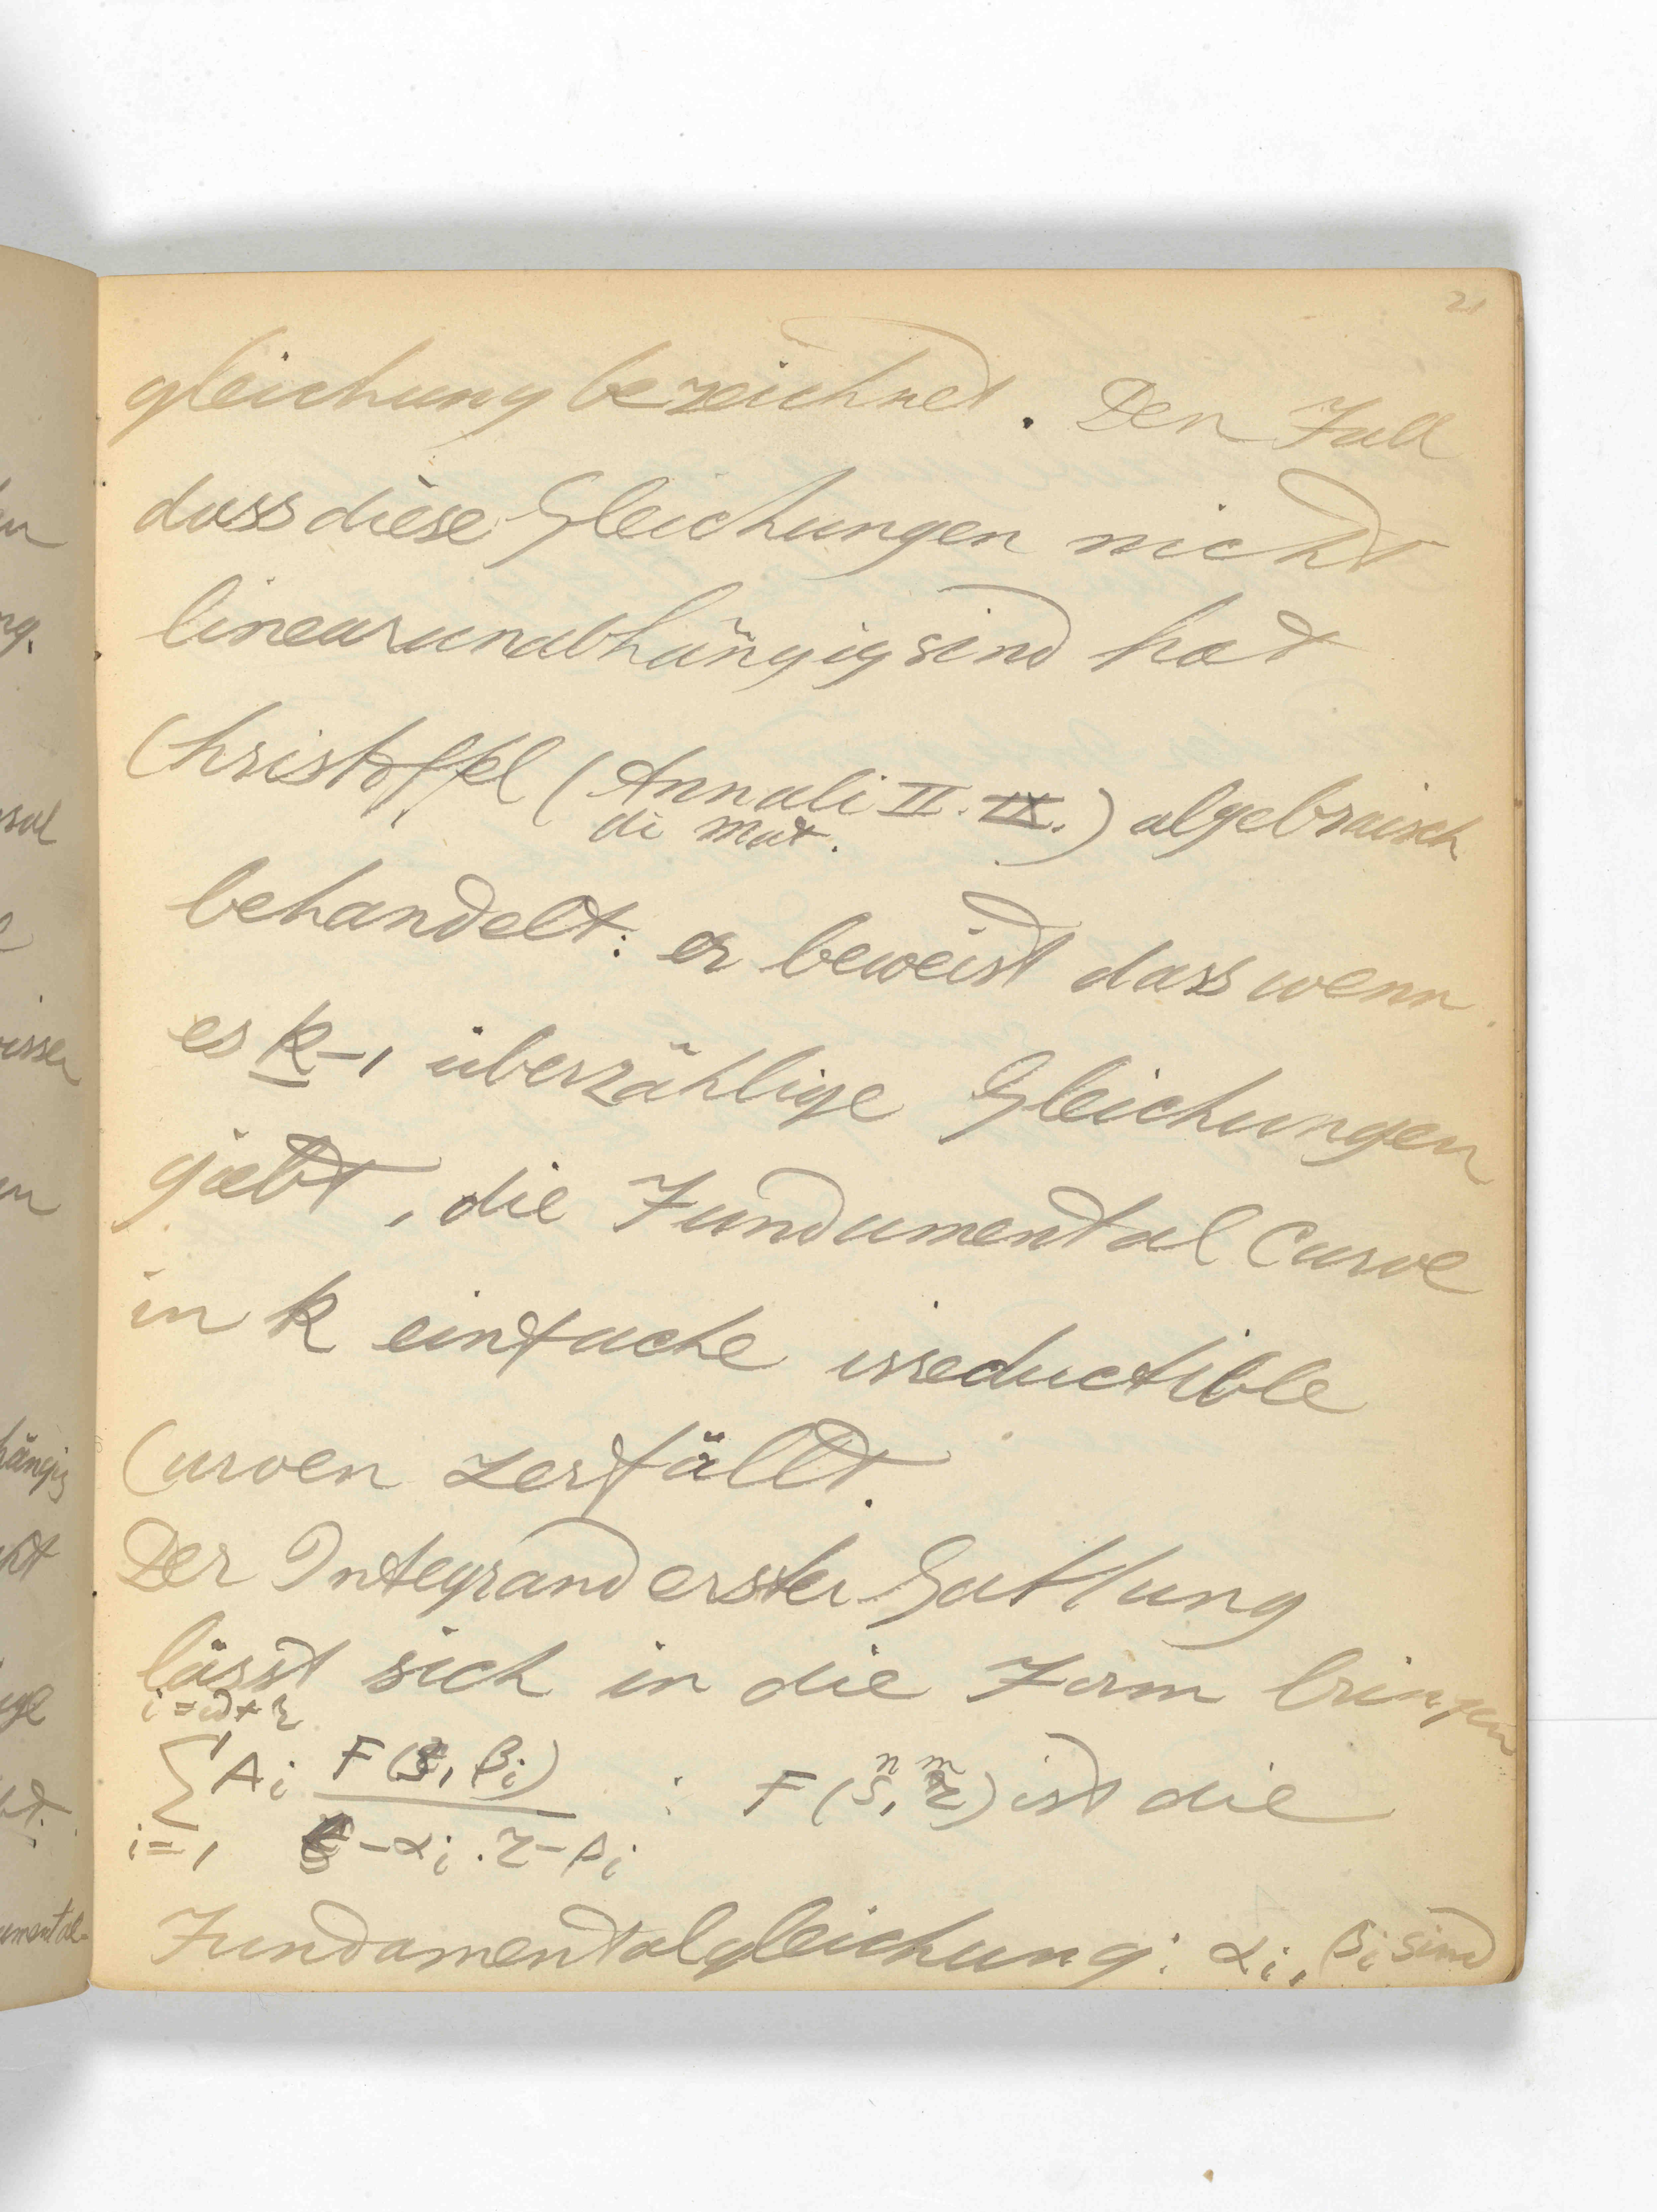 21
gleichung bezeichnet. Den Fall
dass diese Gleichungen nicht
linearunabhängig sind hat
Christoffel (Annali II. IX.) algebraisch
di Mat.
behandelt: er beweist dass wenn
es k-1 überzählige Gleichungen
giebt, die Fundamental Curve
in k einfache irreductible
Curven zerfällt.
Der Integrand erster Gattung
lässt sich in die Form bringen
i=w+r
∑ Ai F(s, βi) : F(s, z) ist die
n m
i=1 s-αi . z-βi
Fundamentalgleichung: αi, βi sind